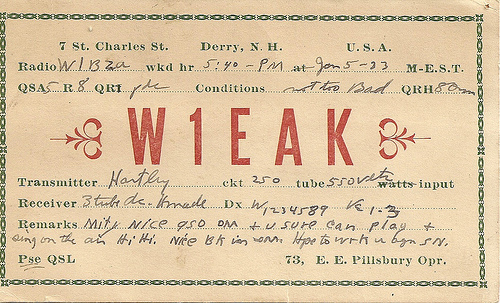 7 St. Charles St. Derry, N. H. U. S. A.
Radio W1BZA wkd hr 5:40 - PM at Jan 5-33 M-E.S.T.
QSA 5 R 8 QRI pdc Conditions not too Bad QRH 80m
W1EAK
Transmitter Hartley ckt 250 tube 550 volts watts input
Receiver Dx W1234589 VE 1-3
Remarks Mity Nice QSO OM + U sure can play +
sing on the air Hi Hi. Nice BK in Hpe to wrk u agn SN.
Pse QSL 73, E. E. Pillsbury Opr.